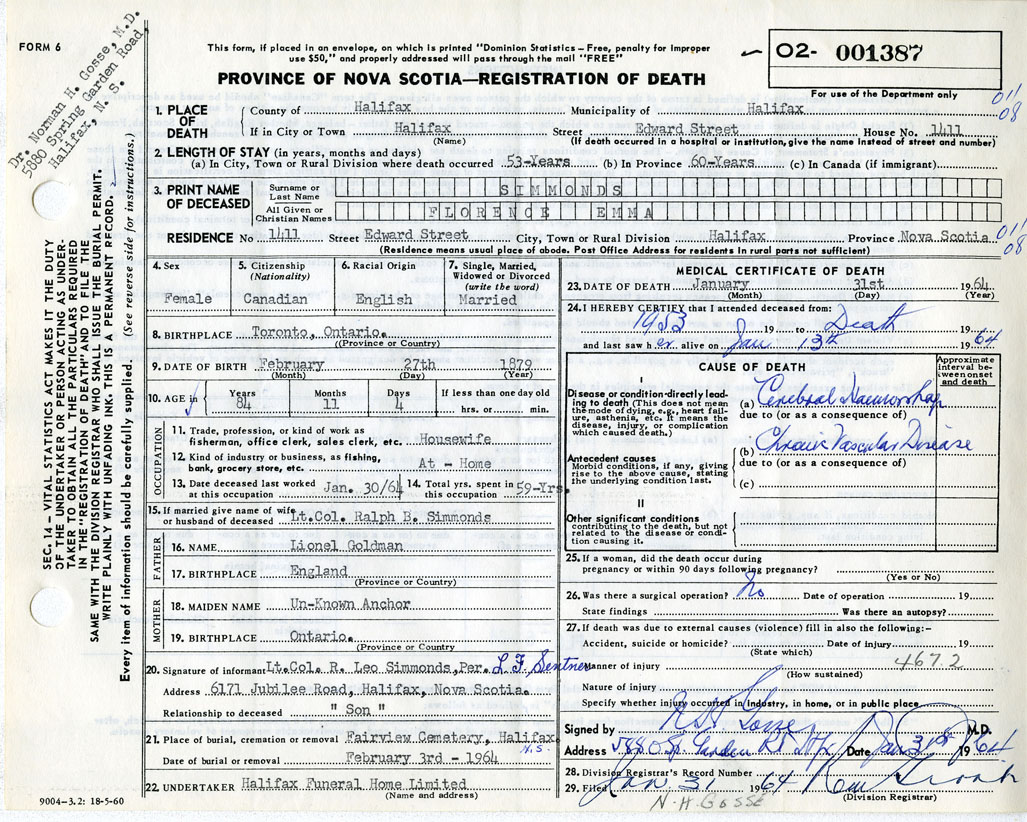 FORM 6
Dr. Norman H. Gosse, M.D.
5880 Spring Garden Road,
Halifax, N. S.
This form, if placed in an envelope, on which is printed "Dominion Statistics – Free, penalty for improper
use $50," and properly addressed will pass through the mail "FREE"
PROVINCE OF NOVA SCOTIA—REGISTRATION OF DEATH
02- 001387
For use of the Department only
011
08
1. PLACE OF DEATH
County of Halifax Municipality of Halifax
If in City or Town Halifax Street Edward Street House No. 1411
(Name) (If death occurred in a hospital or institution, give the name instead of street and number)
2. LENGTH OF STAY (in years, months and days)
(a) In City, Town or Rural Division where death occurred 53-Years (b) In Province 60-Years (c) In Canada (if immigrant)
3. PRINT NAME OF DECEASED
Surname or Last Name SIMMONDS
All Given or Christian Names FLORENCE EMMA
RESIDENCE No 1411 Street Edward Street City, Town or Rural Division Halifax Province Nova Scotia
011
08
(Residence means usual place of abode. Post Office Address for residents in rural parts not sufficient)
4. Sex
Female
5. Citizenship (Nationality)
Canadian
6. Racial Origin
English
7. Single, Married, Widowed or Divorced (write the word)
Married
8. BIRTHPLACE Toronto, Ontario.
(Province or Country)
9. DATE OF BIRTH February 27th 1879
(Month) (Day) (Year)
10. AGE in Years 84 Months 11 Days 4 If less than one day old
hrs. or min.
OCCUPATION
11. Trade, profession, or kind of work as
fisherman, office clerk, sales clerk, etc. Housewife
12. Kind of industry or business, as fishing,
bank, grocery store, etc. At - Home
13. Date deceased last worked at this occupation Jan. 30/64
14. Total yrs. spent in this occupation 59-Yrs.
15. If married give name of wife or husband of deceased Lt.Col. Ralph B. Simmonds
FATHER
16. NAME Lionel Goldman
17. BIRTHPLACE England
(Province or Country)
MOTHER
18. MAIDEN NAME Un-Known Anchor
19. BIRTHPLACE Ontario.
(Province or Country)
20. Signature of informant Lt.Col. R. Leo Simmonds, Per. L F Sentner
Address 6171 Jubilee Road, Halifax, Nova Scotia.
Relationship to deceased " Son "
21. Place of burial, cremation or removal Fairview Cemetery, Halifax N.S.
Date of burial or removal February 3rd - 1964
22. UNDERTAKER Halifax Funeral Home Limited
(Name and address)
MEDICAL CERTIFICATE OF DEATH
23. DATE OF DEATH January 31st 1964
(Month) (Day) (Year)
24. I HEREBY CERTIFY that I attended deceased from:
1953 19 to Death 19
and last saw her alive on Jan 13th 1964
CAUSE OF DEATH
Approximate interval between onset and death
I
Disease or condition directly leading to death (This does not mean the mode of dying, e.g., heart failure, asthenia, etc. It means the disease, injury, or complication which caused death.)
(a) Cerebral Haemorrhage
due to (or as a consequence of)
(b) Chronic Vascular Disease
due to (or as a consequence of)
(c)
Antecedent causes
Morbid conditions, if any, giving rise to the above cause, stating the underlying condition last.
II
Other significant conditions
contributing to the death, but not related to the disease or condition causing it.
25. If a woman, did the death occur during
pregnancy or within 90 days following pregnancy?
(Yes or No)
26. Was there a surgical operation? No Date of operation 19
State findings Was there an autopsy?
27. If death was due to external causes (violence) fill in also the following:—
Accident, suicide or homicide? Date of injury 19
(State which) 467.2
Manner of injury
(How sustained)
Nature of injury
Specify whether injury occurred in industry, in home, or in public place
Signed by N H Gosse M.D.
Address 5880 Sp. Garden Rd Hfx Date Jan 31st 1964
28. Division Registrar's Record Number
29. Filed Jan 31 1964
(Division Registrar)
N-H-GOSSE
9004-3.2: 18-5-60
SEC. 14 – VITAL STATISTICS ACT MAKES IT THE DUTY
OF THE UNDERTAKER OR PERSON ACTING AS UNDER-
TAKER TO OBTAIN ALL THE PARTICULARS REQUIRED
IN THE "REGISTRATION OF DEATH" AND TO FILE THE
SAME WITH THE DIVISION REGISTRAR WHO SHALL ISSUE THE BURIAL PERMIT.
WRITE PLAINLY WITH UNFADING INK. THIS IS A PERMANENT RECORD.
Every item of information should be carefully supplied. (See reverse side for instructions.)